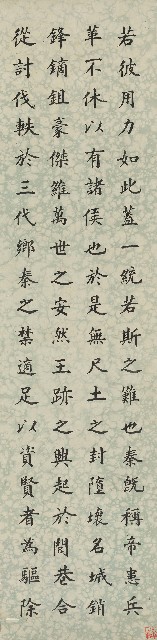 若彼用力如此蓋一統若斯之難也秦既稱帝患兵
革不休以有諸侯也於是無尺土之封墮壞名城銷
鋒鏑鉏豪傑維萬世之安然王跡之興起於閭巷合
從討伐軼於三代鄉秦之禁適足以資賢者為驅除